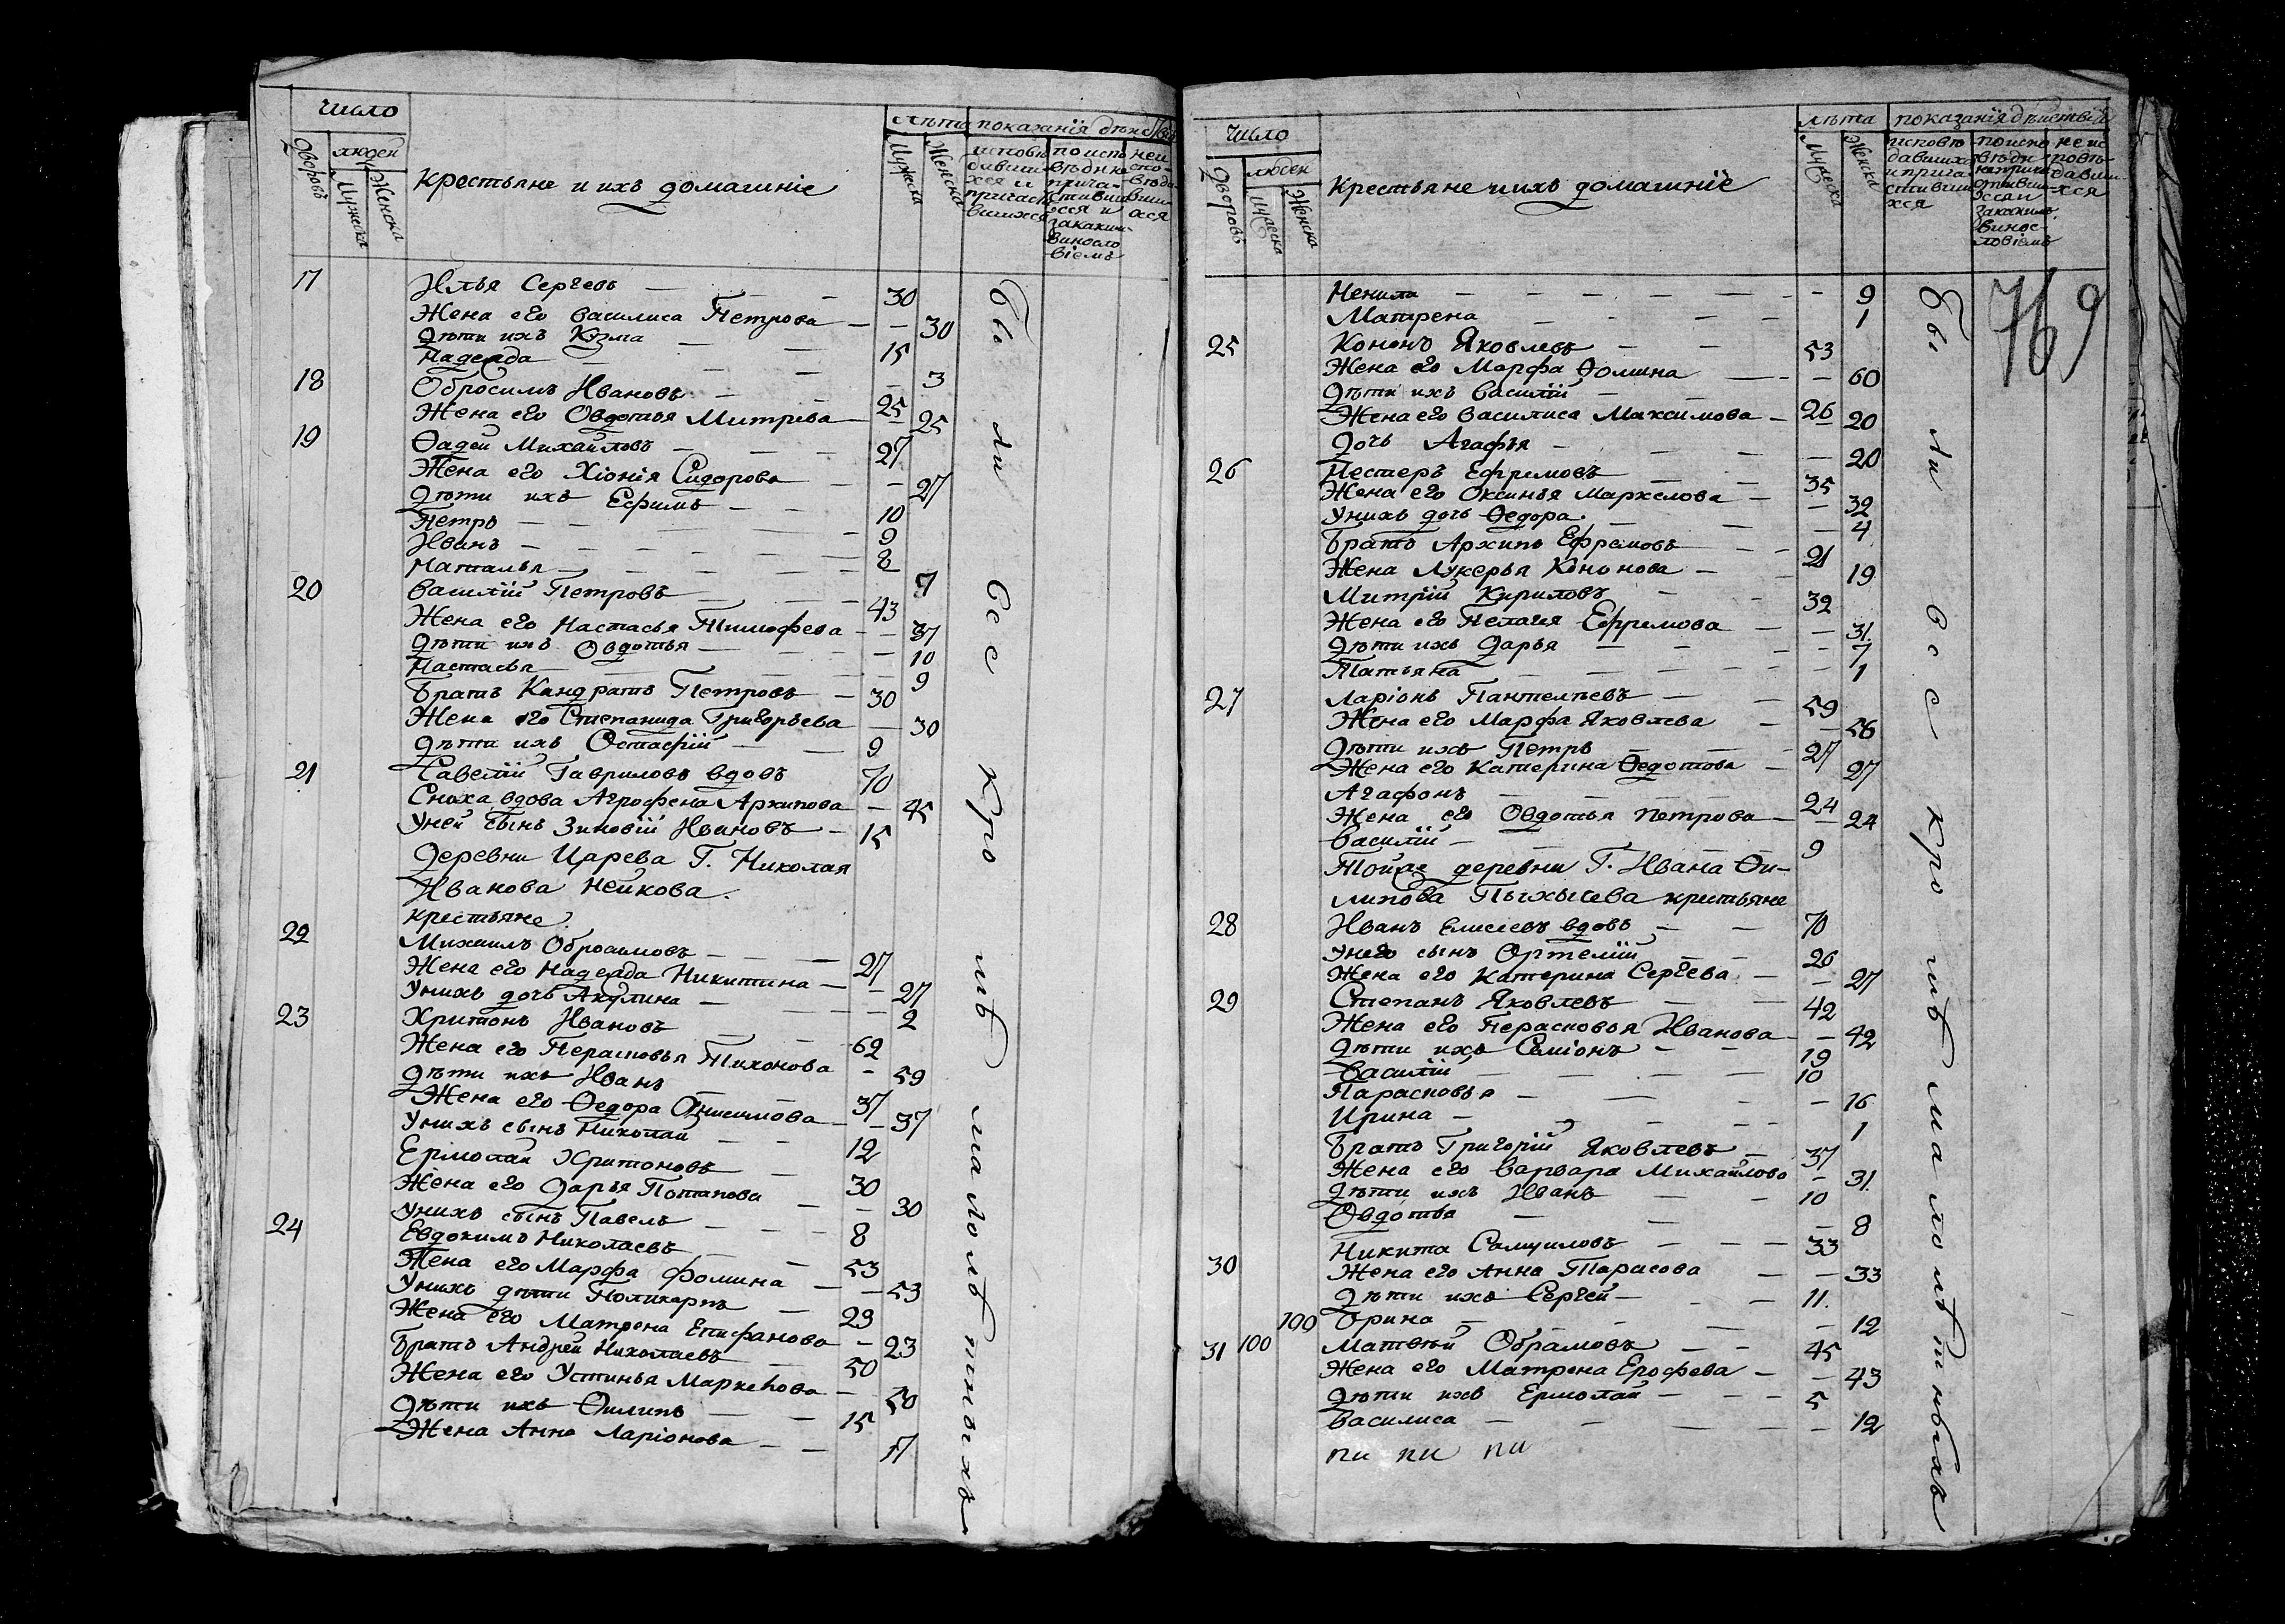 число
людей
Дворовъ
Мужеска
Женска
Крестьяне и ихъ домашнїе
лѣта
показанїя дѣйствъ
Мужеска
Женска
исповѣ
давших
хся и
причаст
вшихся
по испо
вѣдн не
прича-
стивши
хся и
закаким
виносло
вїемъ
неи
спо-
вѣда
вши-
хся
17 Илья Сергевъ — 30
Жена его Василиса Петрова — 30
дѣти ихъ Кузма — 15
Надежда — 3
18 Обросимъ Ивановъ — 25
Жена его Овдотья Митрева — 25
19 Ѳадей Михайловъ — 27
Жена его Хїонїя Сидорова — 27
дѣти ихъ Ефимъ — 10
Петръ — 9
Иванъ — 8
Наталья — 7
20 Василїй Петровъ — 43
Жена его Настасья Тимофева — 37
дѣти ихъ Овдотья — 10
Настасья — 9
братъ Кандратъ Петровъ — 30
Жена его Степанида Григорьева — 30
дѣти ихъ Остафїй — 9
21 Савелїй Гавриловъ вдовъ 70
Сноха вдова Агрофена Архипова — 45
Уней сынъ Зиновїй Ивановъ — 15
Деревни Царева Г. Николая
Иванова Нейкова.
крестьяне
22 Михаилъ Обросимовъ — 27
Жена его Надежда Никитина — 27
Унихъ дочь Акулина — 2
23 Хритонъ Ивановъ — 62
Жена его Перасковья Тихонова — 59
дѣти ихъ Иванъ — 37
Жена его Ѳедора Анисимова — 37
Унихъ сынъ Николай — 12
Ермолай Хритоновъ — 30
Жена его Дарья Потапова — 30
Унихъ сынъ Павелъ — 8
24 Евдокимъ Николаевъ — 53
Жена его Марфа Фомина — 53
Унихъ дѣти Поликарпъ — 23
Жена его Матрена Епифанова — 23
братъ Андрей Николаевъ — 50
Жена его Устинья Маркелова — 50
дѣти ихъ Ѳилипъ — 15
Жена Анна Ларїонова — 17
были все кромѣ малолѣтныхъ
число
людей
Дворовъ
Мужеска
Женска
Крестьяне и ихъ домашнїе
лѣта
показанїя дѣйствъ
Мужеска
Женска
исповѣ
давшихся
и прича-
стивши
хся
по испо
вѣдн
неприча
стивши-
хся и
закакимъ
винос-
ловїемъ
не ис
повѣ-
давши-
хся
769
Ненила — 9
Матрена — 1
25 Кононъ Яковлевъ — 53
Жена его Марфа Ѳомина — 60
дѣти ихъ Василїй — 26
Жена его Василиса Максимова — 20
дочь Агафья — 20
26 Нестеръ Ефремовъ — 35
Жена его Оксинья Маркелова — 32
Унихъ дочь Ѳедора. — 4
братъ Архипъ Ефремовъ — 21
Жена Лукерья Кононова — 19
Митрїй Кириловъ — 32
Жена его Пелагея Ефремова — 31.
дѣти ихъ Дарья — 7
Татьяна — 1
27 Ларїонъ Пантелѣевъ — 59
Жена его Марфа Яковлева — 56
дѣти ихъ Петръ — 27
Жена его Катерина Ѳедотова — 27
Агафонъ — 24
Жена его Овдотья Петрова — 24
Василїй — 9
Тойже деревни Г. Ивана Ѳи-
липова крестьяне
28 Иванъ Елисеевъ вдовъ — 70
унего сынъ Ортемїй — 26
Жена его Катерина Сергева — 27
29 Степанъ Яковлевъ — 42
Жена его Перасковья Иванова — 42
дѣти ихъ Самїонъ — 19
Василїй — 10
Парасковья — 16
Ирина — 1
братъ Григорїй Яковлевъ — 37
Жена его Варвара Михайлова — 31.
дѣти ихъ Иванъ — 10
Овдотья — 8
Никита Самуиловъ — 33
30 Жена его Анна Тарасова — 33
дѣти ихъ Сергей — 11.
100 Орина — 12
31 100 Матвѣй Обрамовъ — 45
Жена его Матрена Ерофева — 43
дѣти ихъ Ермолай — 5
Василиса — 12
пи пи пи
были все кромѣ малолѣтныхъ